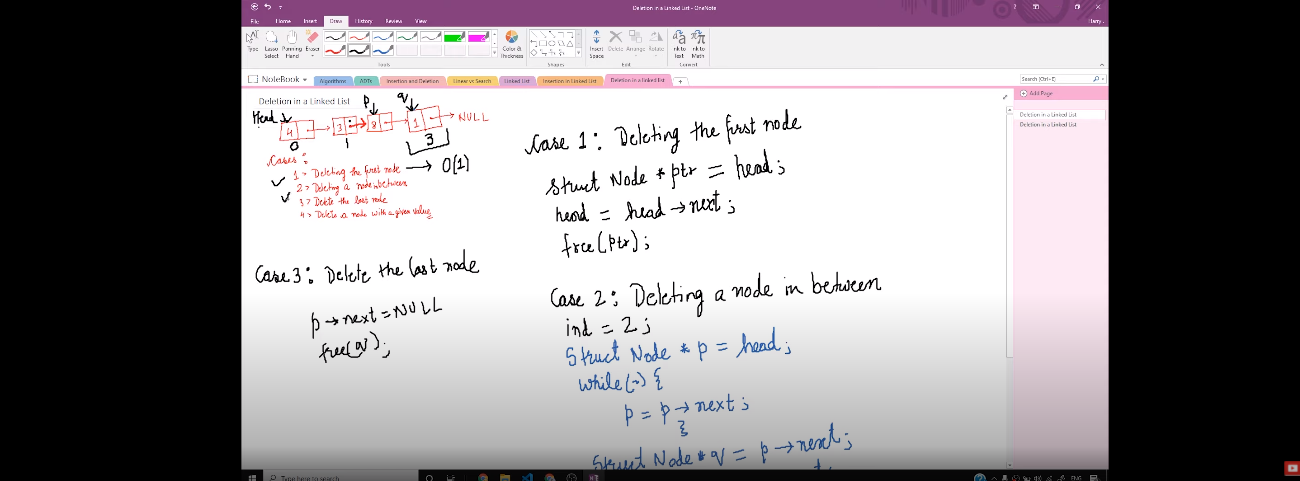 Deletion in a Linked List - OneNote
Harry .
File Home Insert Draw History Review View
Type Lasso Select Panning Hand Eraser Color & Thickness Insert Space Delete Arrange Rotate Ink to Text Ink to Math
Tools Shapes Convert
NoteBook Algorithms ADTs Insertion and Deletion Linear vs Search Linked List Insertion in Linked List Deletion in a linked list
Search (Ctrl+E)
Add Page
Deletion in a Linked List
Deletion in a Linked List
Deletion in a Linked List
p q
Head
4 3 8 1 NULL
0 1 3
Cases :
1 > Deleting the first node → O(1)
2 > Deleting a node in between
3 > Delete the last node
4 > Delete a node with a given value
Case 3: Delete the last node
p → next = NULL
free(q);
Case 1: Deleting the first node
struct Node * ptr = head;
head = head → next;
free(ptr);
Case 2: Deleting a node in between
ind = 2;
Struct Node * p = head;
while(~) {
p = p → next;
}
Struct Node * q = p → next;
Type here to search
ENG